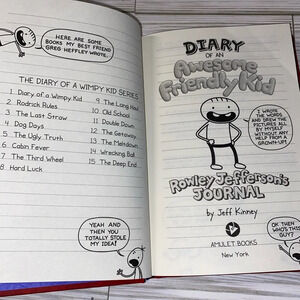 HERE ARE SOME
BOOKS MY BEST FRIEND
GREG HEFFLEY WROTE.
THE DIARY OF A WIMPY KID SERIES
1 Diary of a Wimpy Kid
2 Rodrick Rules
3 The Last Straw
4 Dog Days
5 The Ugly Truth
6 Cabin Fever
7 The Third Wheel
8 Hard Luck
9 The Long Haul
10 Old School
11 Double Down
12 The Getaway
13 The Meltdown
14 Wrecking Ball
15 The Deep End
YEAH AND
THEN YOU
TOTALLY STOLE
MY IDEA!
DIARY
OF AN
Awesome
Friendly Kid
I WROTE
THE WORDS
AND DREW THE
PICTURES ALL
BY MYSELF
WITHOUT ANY
HELP FROM A
GROWN-UP!
Rowley Jefferson's
JOURNAL
by Jeff Kinney
AMULET BOOKS
New York
OK THEN,
WHO'S THIS
GUY?